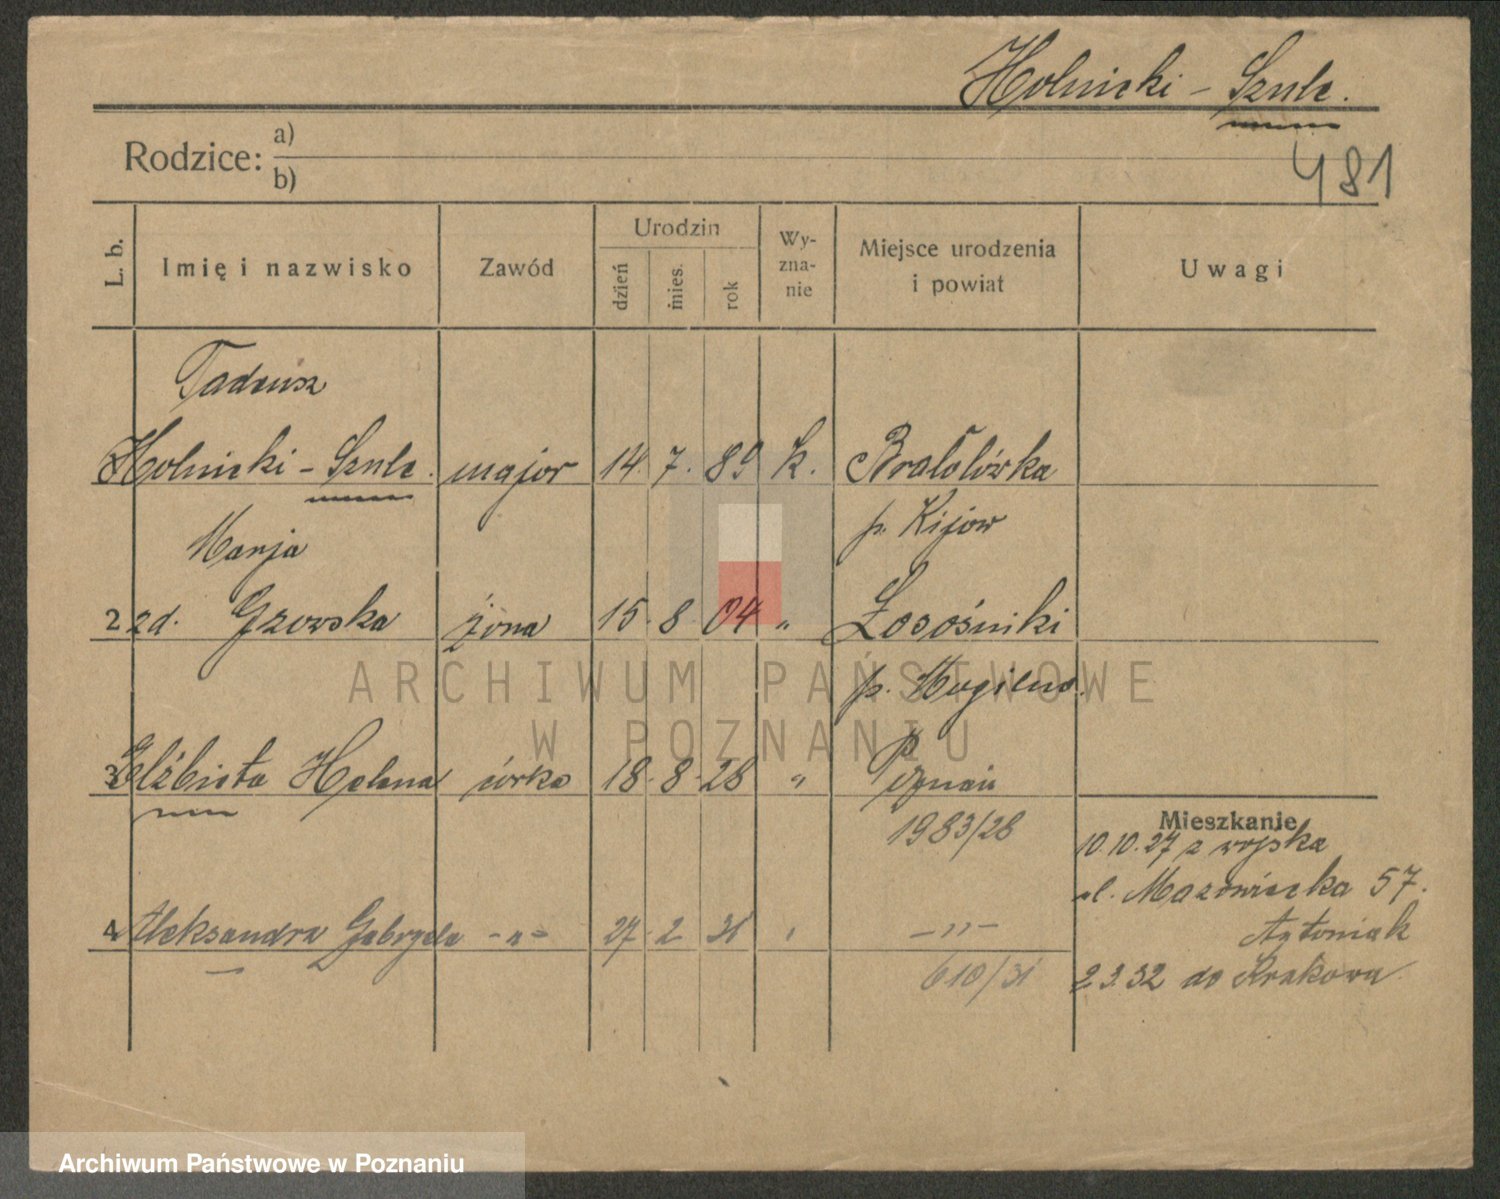 Holnicki - Szulc.
Rodzice: a)
b)
481
L. b.
Imię i nazwisko
Zawód
Urodzin
dzień
mies.
rok
Wy-
zna-
nie
Miejsce urodzenia
i powiat
Uwagi
Tadeusz
Holnicki - Szulc. major 14. 7. 89 k.
p. Kijów
Marja
2 zd. Gzowska żona 15. 8. 04 " Łosośniki
p. Mogilno.
3 Elżbieta Helena córka 18. 8. 28 " Poznań
1983/28
Mieszkanie
10.10.27 z wojska
ul. Mazowiecka 57.
4 Aleksandra Gabryela -"- 27 2 31 " -"-
610/31
2.3.32 do Krakowa.
ARCHIWUM PAŃSTWOWE
W POZNANIU
Archiwum Państwowe w Poznaniu